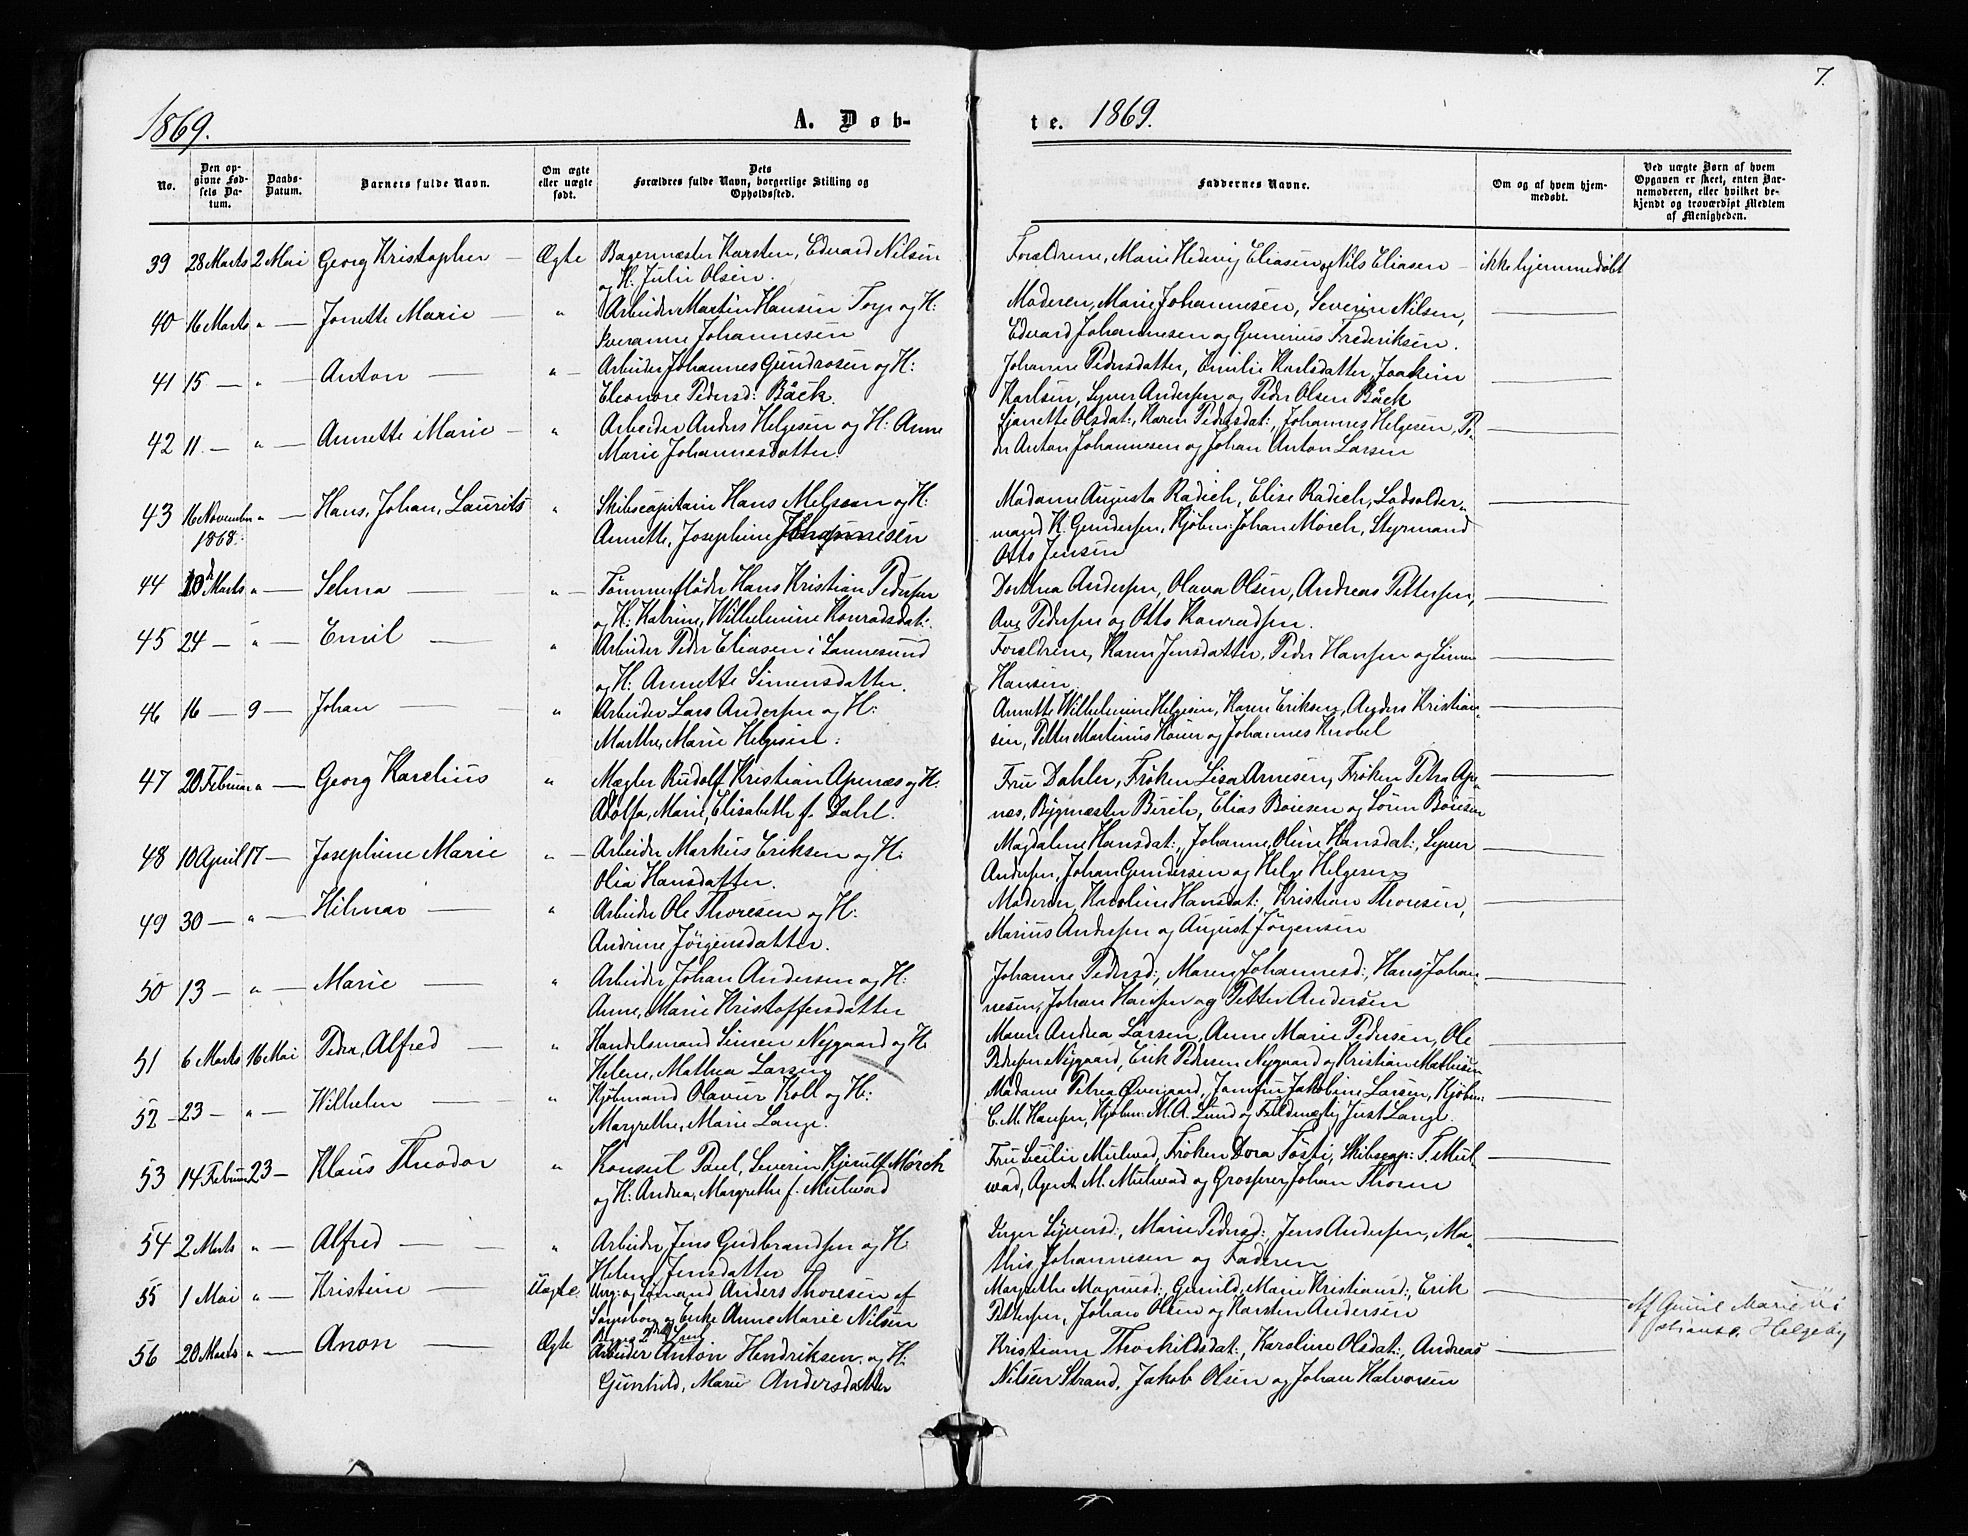 7.
1869.
A. Døb-
te.
1869.
No.
Den op-
givne Fød-
sels Da-
tum.
Daabs-
Datum.
Barnets fulde Navn.
Om ægte
eller uægte
født.
Dets
Forældres fulde Navn, borgerlige Stilling og
Opholdssted.
Faddernes Navne.
Om og af hvem hjem-
medøbt.
Ved uægte Børn af hvem
Opgaven er skeet, enten Bar-
nemoderen, eller hvilket be-
kjendt og troværdigt Medlem
af Menigheden.
39 28 Marts 2 Mai Georg Kristopher — Ægte Bagermester Karsten, Edvard Nilsen
og H. Julie Olsen.
Forældrene, Marie Hedevig Eliasen og Nils Eliasen — ikke hjemmedøbt
40 16 Marts „ — Jonette Marie — „ Arbeider Martin Hansen Torp og H:
Johannesen
Moderen, Marie Johannesen, Severin Nilsen,
Edvard Johannesen og Gunerius Frederiksen.
41 15 — „ — Anton — „ — Arbeider Johannes Gundrosen og H:
Eleonore Pedersd: Båck.
Johanne Pedersdatter, Emilie Karlsdatter, Joakim
Karlsen, Syver Andersen og Peder Olsen Båck
42 11 — „ — Annette Marie — „ Arbeider Anders Helgesen og H: Anne
Marie Johannesdatter.
Olsdat:, Karen Pedersdat:, Johannes Helgesen, Pe-
der Anton Johannesen og Johan Anton Larsen
43 16 November „ — Hans, Johan, Laurits „ Skibscapitain Hans Melsom og H:
1868.
Annette, Josephine Johannesen
Madame Augusta Radich, Elise Radich, Lodsolder-
mand K. Gundersen, Kjøbm: Johan Mørch, Styrmand
Otto Jensen
44 10 Marts „ — Selma — „ — Tømmerfløder Hans Kristian Pedersen
og H: Katrine, Wilhelmine Konradsdat:.
Dorthea Andersen, Olava Olsen, Andreas Pettersen,
Pedersen og Otto Konradsen.
45 24 — „ — Emil — „ Arbeider Peder Eliasen i Lannesund
og H: Annette Simensdatter.
Forældrene, Karen Jensdatter, Peder Hansen og Simen
Hansen.
46 16 — 9 — Johan — „ Arbeider Lars Andersen og H:
Marthe, Marie Helgesen:
Annette Wilhelmine Helgesen, Karen Eriksen, Anders Kristian-
sen, Petter Martinius og Johannes Knobel
47 20 Februar „ — Georg Karelius „ Mægler Rudolf Kristian Apenæs og H:
Adolfa, Marie, Elisabeth f. Dahl.
Fru Dahler, Frøken Lisa Arnesen, Frøken Petra Ape-
næs, Bygmester Birch, Elias Boiesen og Søren Boiesen
48 10 April 17 — Josephine Marie „ — Arbeider Markus Eriksen og H:
Olia Hansdatter.
Magdalene Hansdat:, Johanne, Oline Hansdat:, Syver
Andersen, Johan Gundersen og Helge Helgesen
49 30 — „ — Hilmar — „ Arbeider Ole Thoresen og H:
Andrine Jørgensdatter.
Moderen, Karoline Hansdat:, Kristian Thoresen,
Marius Andersen og August Jørgensen
50 13 — „ — Marie — „ Arbeider Johan Andersen og H:
Anne, Marie Kristoffersdatter
Johanne Pedersd:, Maren Johannesd:, Hans Johan-
nesen, Johan Hansen og Petter Andersen
51 6 Marts 16 Mai Peder, Alfred — „ Handelsmand Simen Nygaard og H:
Helene, Mathea Larsen
Maren Andrea Larsen, Anne Marie Pedersen, Ole
Pedersen Nygaard, Erik Pedersen Nygaard og Kristian Mathisen
52 — 23 — „ — Wilhelm — „ Kjøbmand Olavus Koll og H:
Margrethe, Marie Lange.
Madame Petrea Øvergaard, Jomfru Jakobine Larsen, Kjøbm:
C. M. Hansen, Kjøbm: M. A. Lund og Fuldmægtig Just Lange
53 14 Februar 23 — Klaus Theodor „ Konsul Paul, Severin Kjerulf Mørch
og H: Andrea, Margrethe f. Mulvad
Fru Cecilie Mulvad, Frøken Dora Tosti, Skibscap: T. Mul-
vad, Agent M. Mulvad og Grosserer Johan Thorne
54 2 Marts „ — Alfred — „ Arbeider, Jens Gudbrandsen og H:
Helene Jensdatter
Inger Syversd:, Marie Pedersd:, Jens Andersen, Ma-
this, Johannesen og Faderen
55 1 Mai „ — Kristine — Uægte Ung: og Sømand Anders Thoresen af
Sarpsborg og Enke Anne Marie Nilsen
Margrethe Magnusd:, Gunild, Marie Kristiansd:, Erik
Pettersen, Johan Olsen og Karsten Andersen
Af Gunil Marie
Helgeby
56 20 Marts „ — Anon — Ægte Arbeider Anton Hendriksen og H:
Gunhild, Marie Andersdatter
Kristiane Thorkildsdat:, Karoline Olsdat:, Andreas
Nilsen Strand, Jakob Olsen og Johan Halvorsen